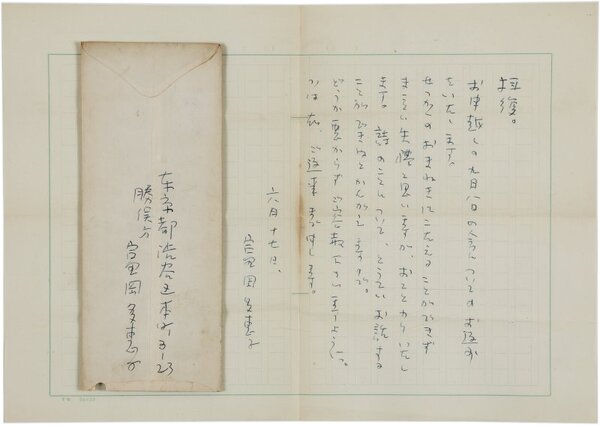 拝復。
お申越しの九月八日の会についてのお返事
をいたします。
せっかくのおまねきに応えることができず
まことに失禮と思いますが、おことわりいたし
ます。詩のことについて、とうていお話する
ことができぬとかんがえますので。
どうか悪からず御容赦下さいますように。
右、ご返事申します。
六月十七日、
富岡多恵子
東京都渋谷区本町3-23
勝俣方
富岡多恵子